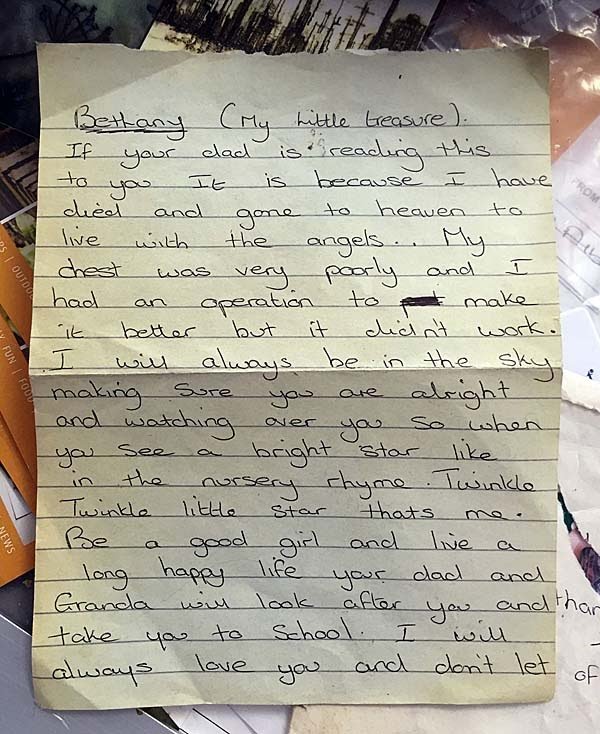 Bethany (My little treasure).
If your dad is reading this
to you It is because I have
died and gone to heaven to
live with the angels... My
chest was very poorly and I
had an operation to make
it better but it didn't work.
I will always be in the sky
making sure you are alright
and watching over you so when
you see a bright star like
in the nursery rhyme. Twinkle
Twinkle little star thats me.
Be a good girl and live a
long happy life your dad and
Granda will look after you and
take you to School. I will
always love you and don't let
of
FUN | FOOD
NEWS